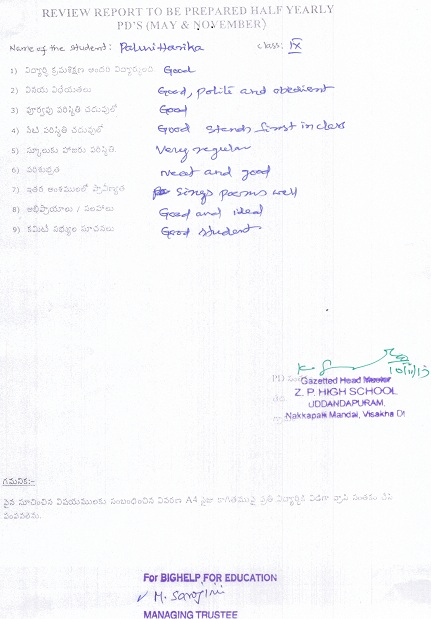 REVIEW REPORT TO BE PREPARED HALF YEARLY
PD'S (MAY & NOVEMBER)
Name of the student: Paluri Harika class: IX
1) విద్యార్థి క్రమశిక్షణ Good
2) వినయ విధేయతలు Good, polite and obedient
3) పూర్వపు పరిస్థితి చదువులో Good
4) నేటి పరిస్థితి చదువులో Good stands first in class
5) స్కూలుకు హాజరు పరిస్థితి. Very regular
6) పరిశుభ్రత neat and good
7) ఇతర అంశములలో ప్రావీణ్యత Sings poems well
8) అభిప్రాయాలు / సలహాలు Good and ideal
9) కమిటీ సభ్యుల సూచనలు Good student
10/11/13
Gazetted Head Master
Z. P. HIGH SCHOOL
UDDANDAPURAM,
Nakkapalli Mandal, Visakha Dt
గమనిక:-
పైన సూచించిన విషయములకు సంబంధించిన వివరణ A4 సైజు కాగితముపై ప్రతి విద్యార్థికి విడిగా వ్రాసి సంతకం చేసి
పంపవలెను.
For BIGHELP FOR EDUCATION
M. Sarojini
MANAGING TRUSTEE